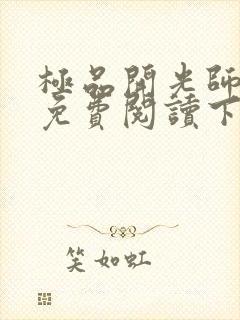 極品開光師
免費閱讀下
笑如虹